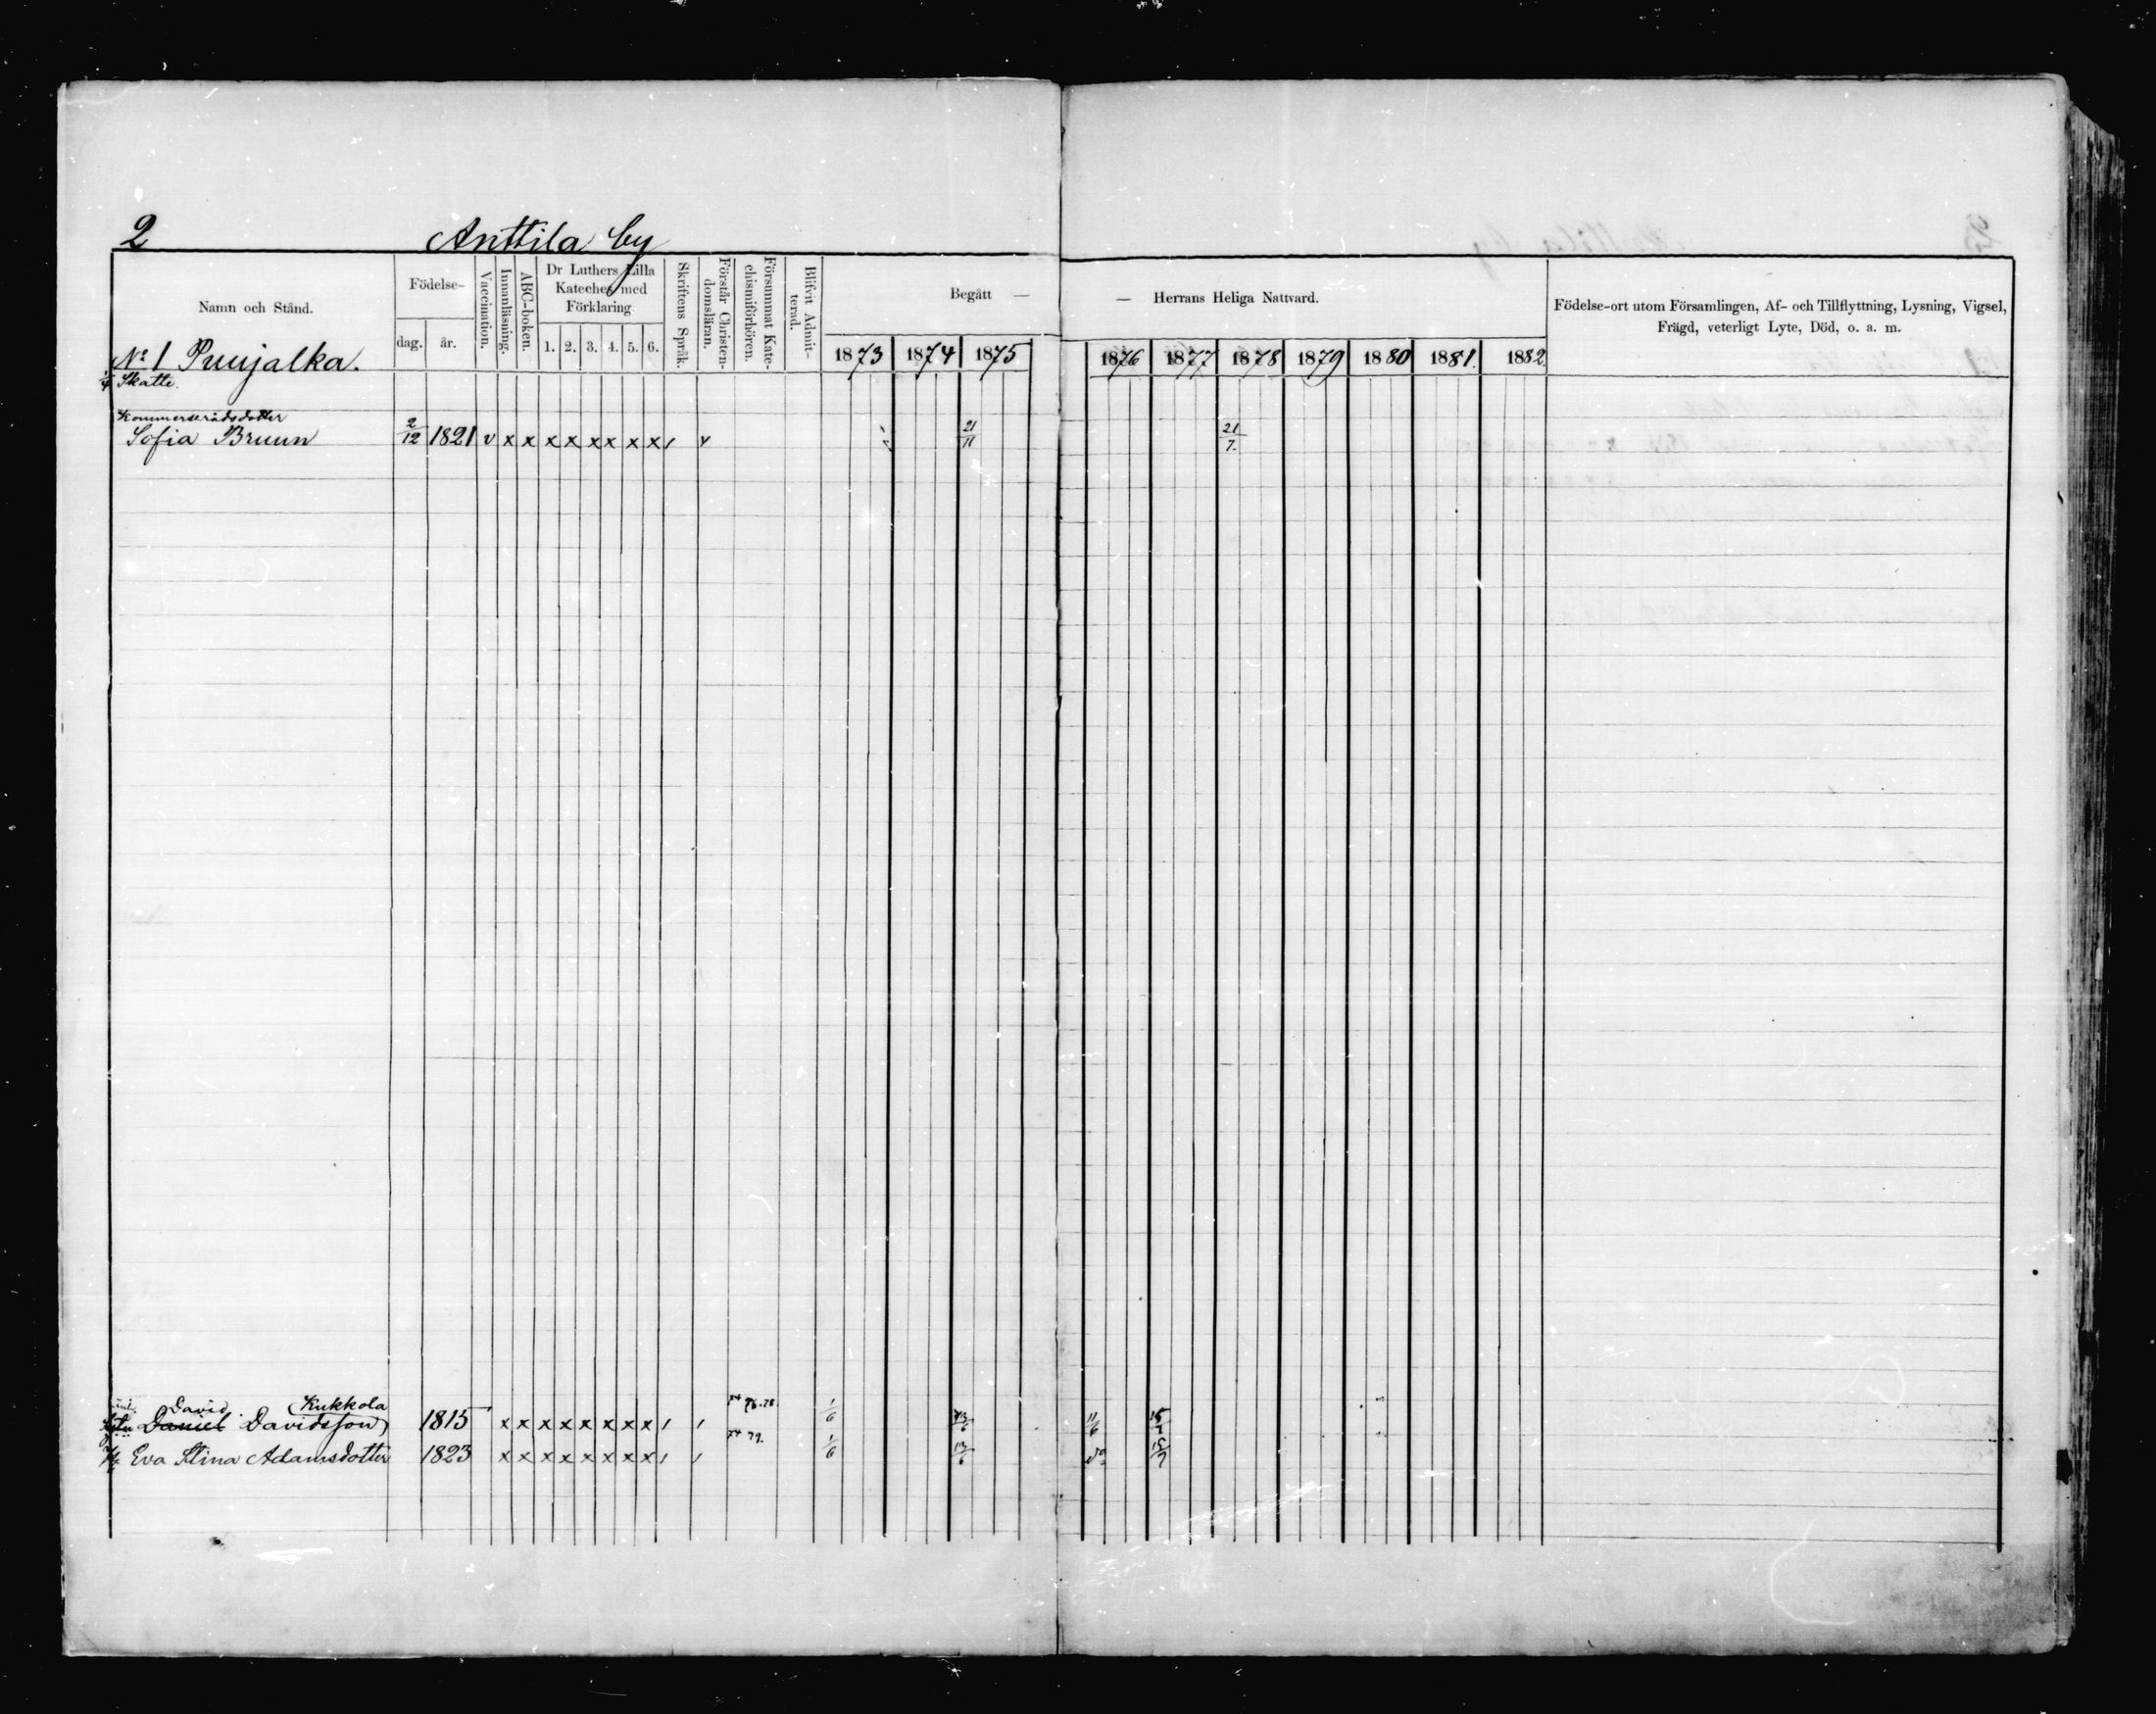 2 Anttila by
Namn och Stånd.
Födelse-
dag. år.
Vaccination.
Innanläsning.
ABC-boken.
Dr Luthers Lilla
Kateches med
Förklaring
1. 2. 3. 4. 5. 6.
Skriftens Språk.
Förstår Christen-
domsläran.
Försummat Kate-
chismiförhören.
Blifvit Admit-
terad.
Begått —
— Herrans Heliga Nattvard.
1873 1874 1875 1876 1877 1878 1879 1880 1881. 1882.
Födelse-ort utom Församlingen, Af- och Tillflyttning, Lysning, Vigsel,
Frägd, veterligt Lyte, Död, o. a. m.
No 1 Puujalka.
Skatte.
Kommerserådsdotter
Sofia Bruun 2/12 1821 v x x x x x x x x / v 21/11 21/7.
David Kukkola
Daniel Davidsson 1815 x x x x x x x x / / 76.78. 1/6 13/6 11/6 15/7
Eva Stina Adamsdotter 1823 x x x x x x x x / / 79. 1/6 13/6 do 15/7